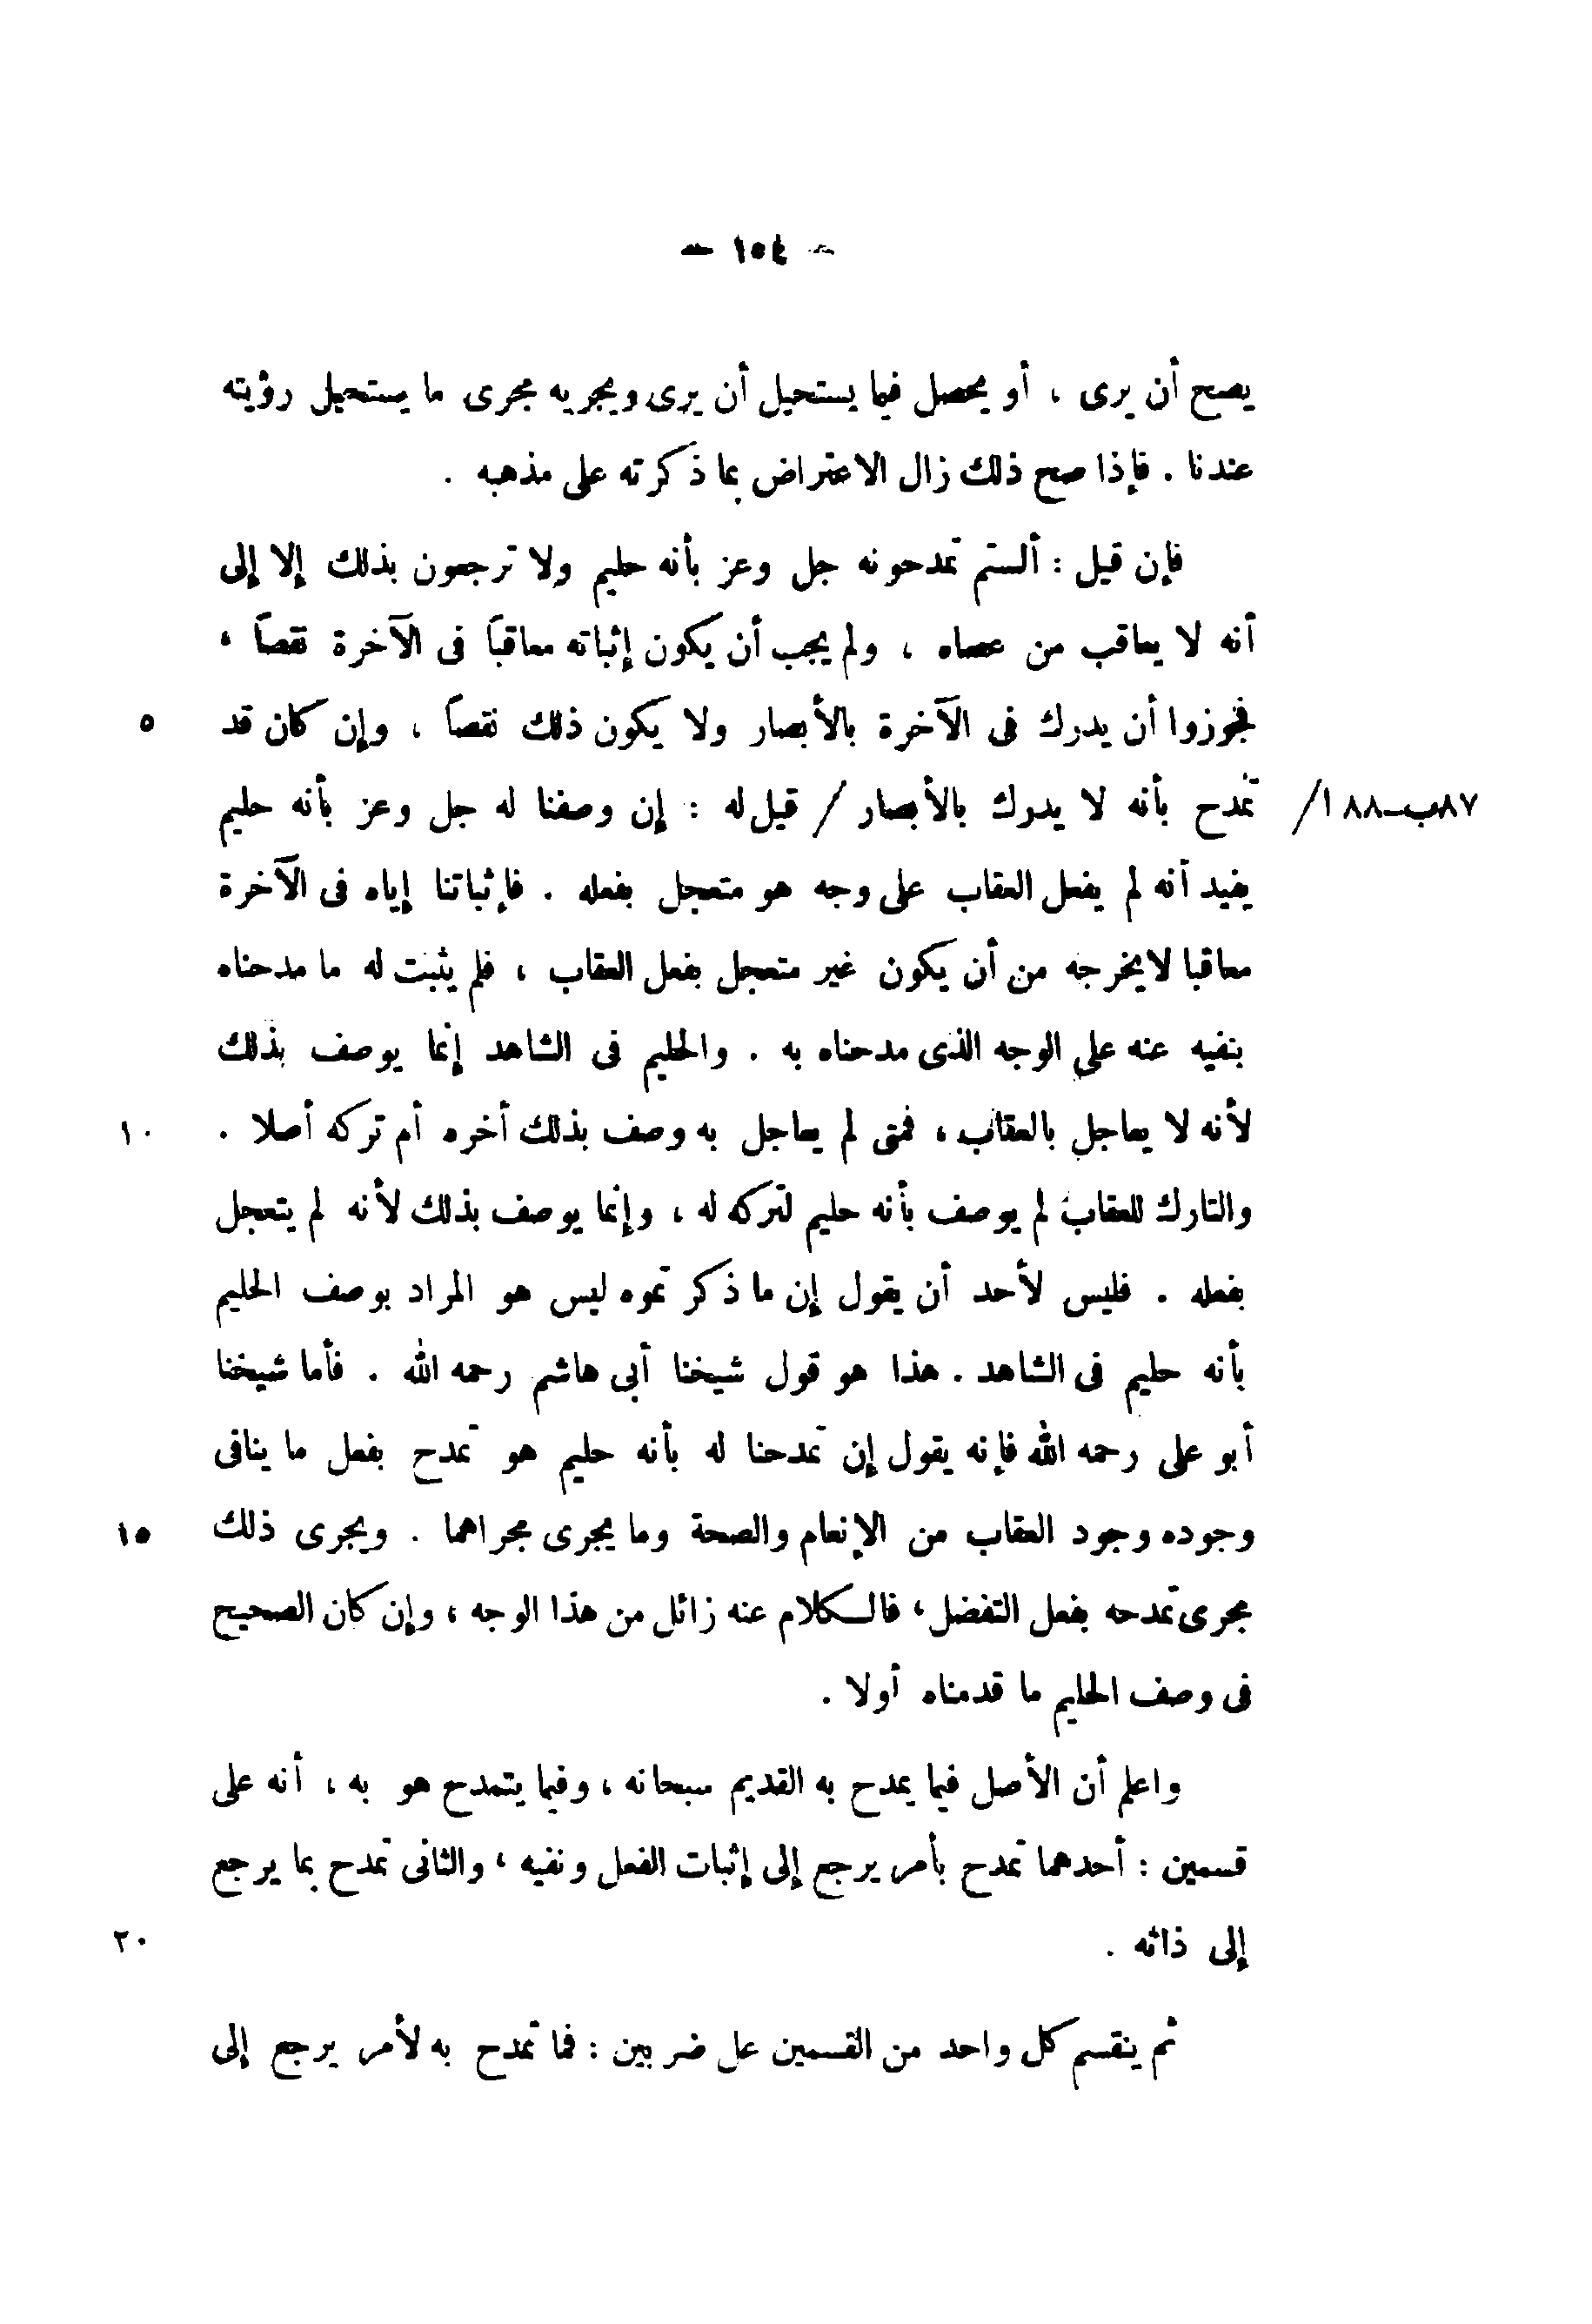 — ١٥٤ —
يصح أن يرى ، أو يحصل فيما يستحيل أن يرى ويجريه مجرى ما يستحيل رؤيته
عندنا . فإذا صح ذلك زال الاعتراض بما ذكرته على مذهبه .
فإن قيل : ألستم تمدحونه جل وعز بأنه حليم ولا ترجعون بذلك إلا إلى
أنه لا يعاقب من عصاه ، ولم يجب أن يكون إثباته معاقبًا فى الآخرة نقصًا ،
فجوزوا أن يدرك فى الآخرة بالأبصار ولا يكون ذلك نقصًا ، وإن كان قد ٥
٨٧ب–٨٨ ا/ تمدح بأنه لا يدرك بالأبصار / قيل له : إن وصفنا له جل وعز بأنه حليم
يفيد أنه لم يفعل العقاب على وجه هو متعجل بفعله . فإثباتنا إياه فى الآخرة
معاقبا لا يخرجه من أن يكون غير متعجل بفعل العقاب ، فلم يثبت له ما مدحناه
بنفيه عنه على الوجه الذى مدحناه به . والحليم فى الشاهد إنما يوصف بذلك
لأنه لا يعاجل بالعقاب ، فمتى لم يعاجل به وصف بذلك أخره أم تركه أصلا . ١٠
والتارك للعقاب لم يوصف بأنه حليم لتركه له ، وإنما يوصف بذلك لأنه لم يتعجل
بفعله . فليس لأحد أن يقول إن ما ذكرتموه ليس هو المراد بوصف الحليم
بأنه حليم فى الشاهد . هذا هو قول شيخنا أبى هاشم رحمه الله . فأما شيخنا
أبو على رحمه الله فإنه يقول إن تمدحنا له بأنه حليم هو تمدح بفعل ما ينافى
وجوده وجود العقاب من الإنعام والصحة وما يجرى مجراهما . ويجرى ذلك ١٥
مجرى تمدحه بفعل التفضل ، فالكلام عنه زائل من هذا الوجه ، وإن كان الصحيح
فى وصف الحليم ما قدمناه أولا .
واعلم أن الأصل فيما يمدح به القديم سبحانه ، وفيما يتمدح هو به ، أنه على
قسمين : أحدهما تمدح بأمر يرجع إلى إثبات الفعل ونفيه ، والثانى تمدح بما يرجع
إلى ذاته . ٢٠
ثم ينقسم كل واحد من القسمين عل ضربين : فما تمدح به لأمر يرجع إلى